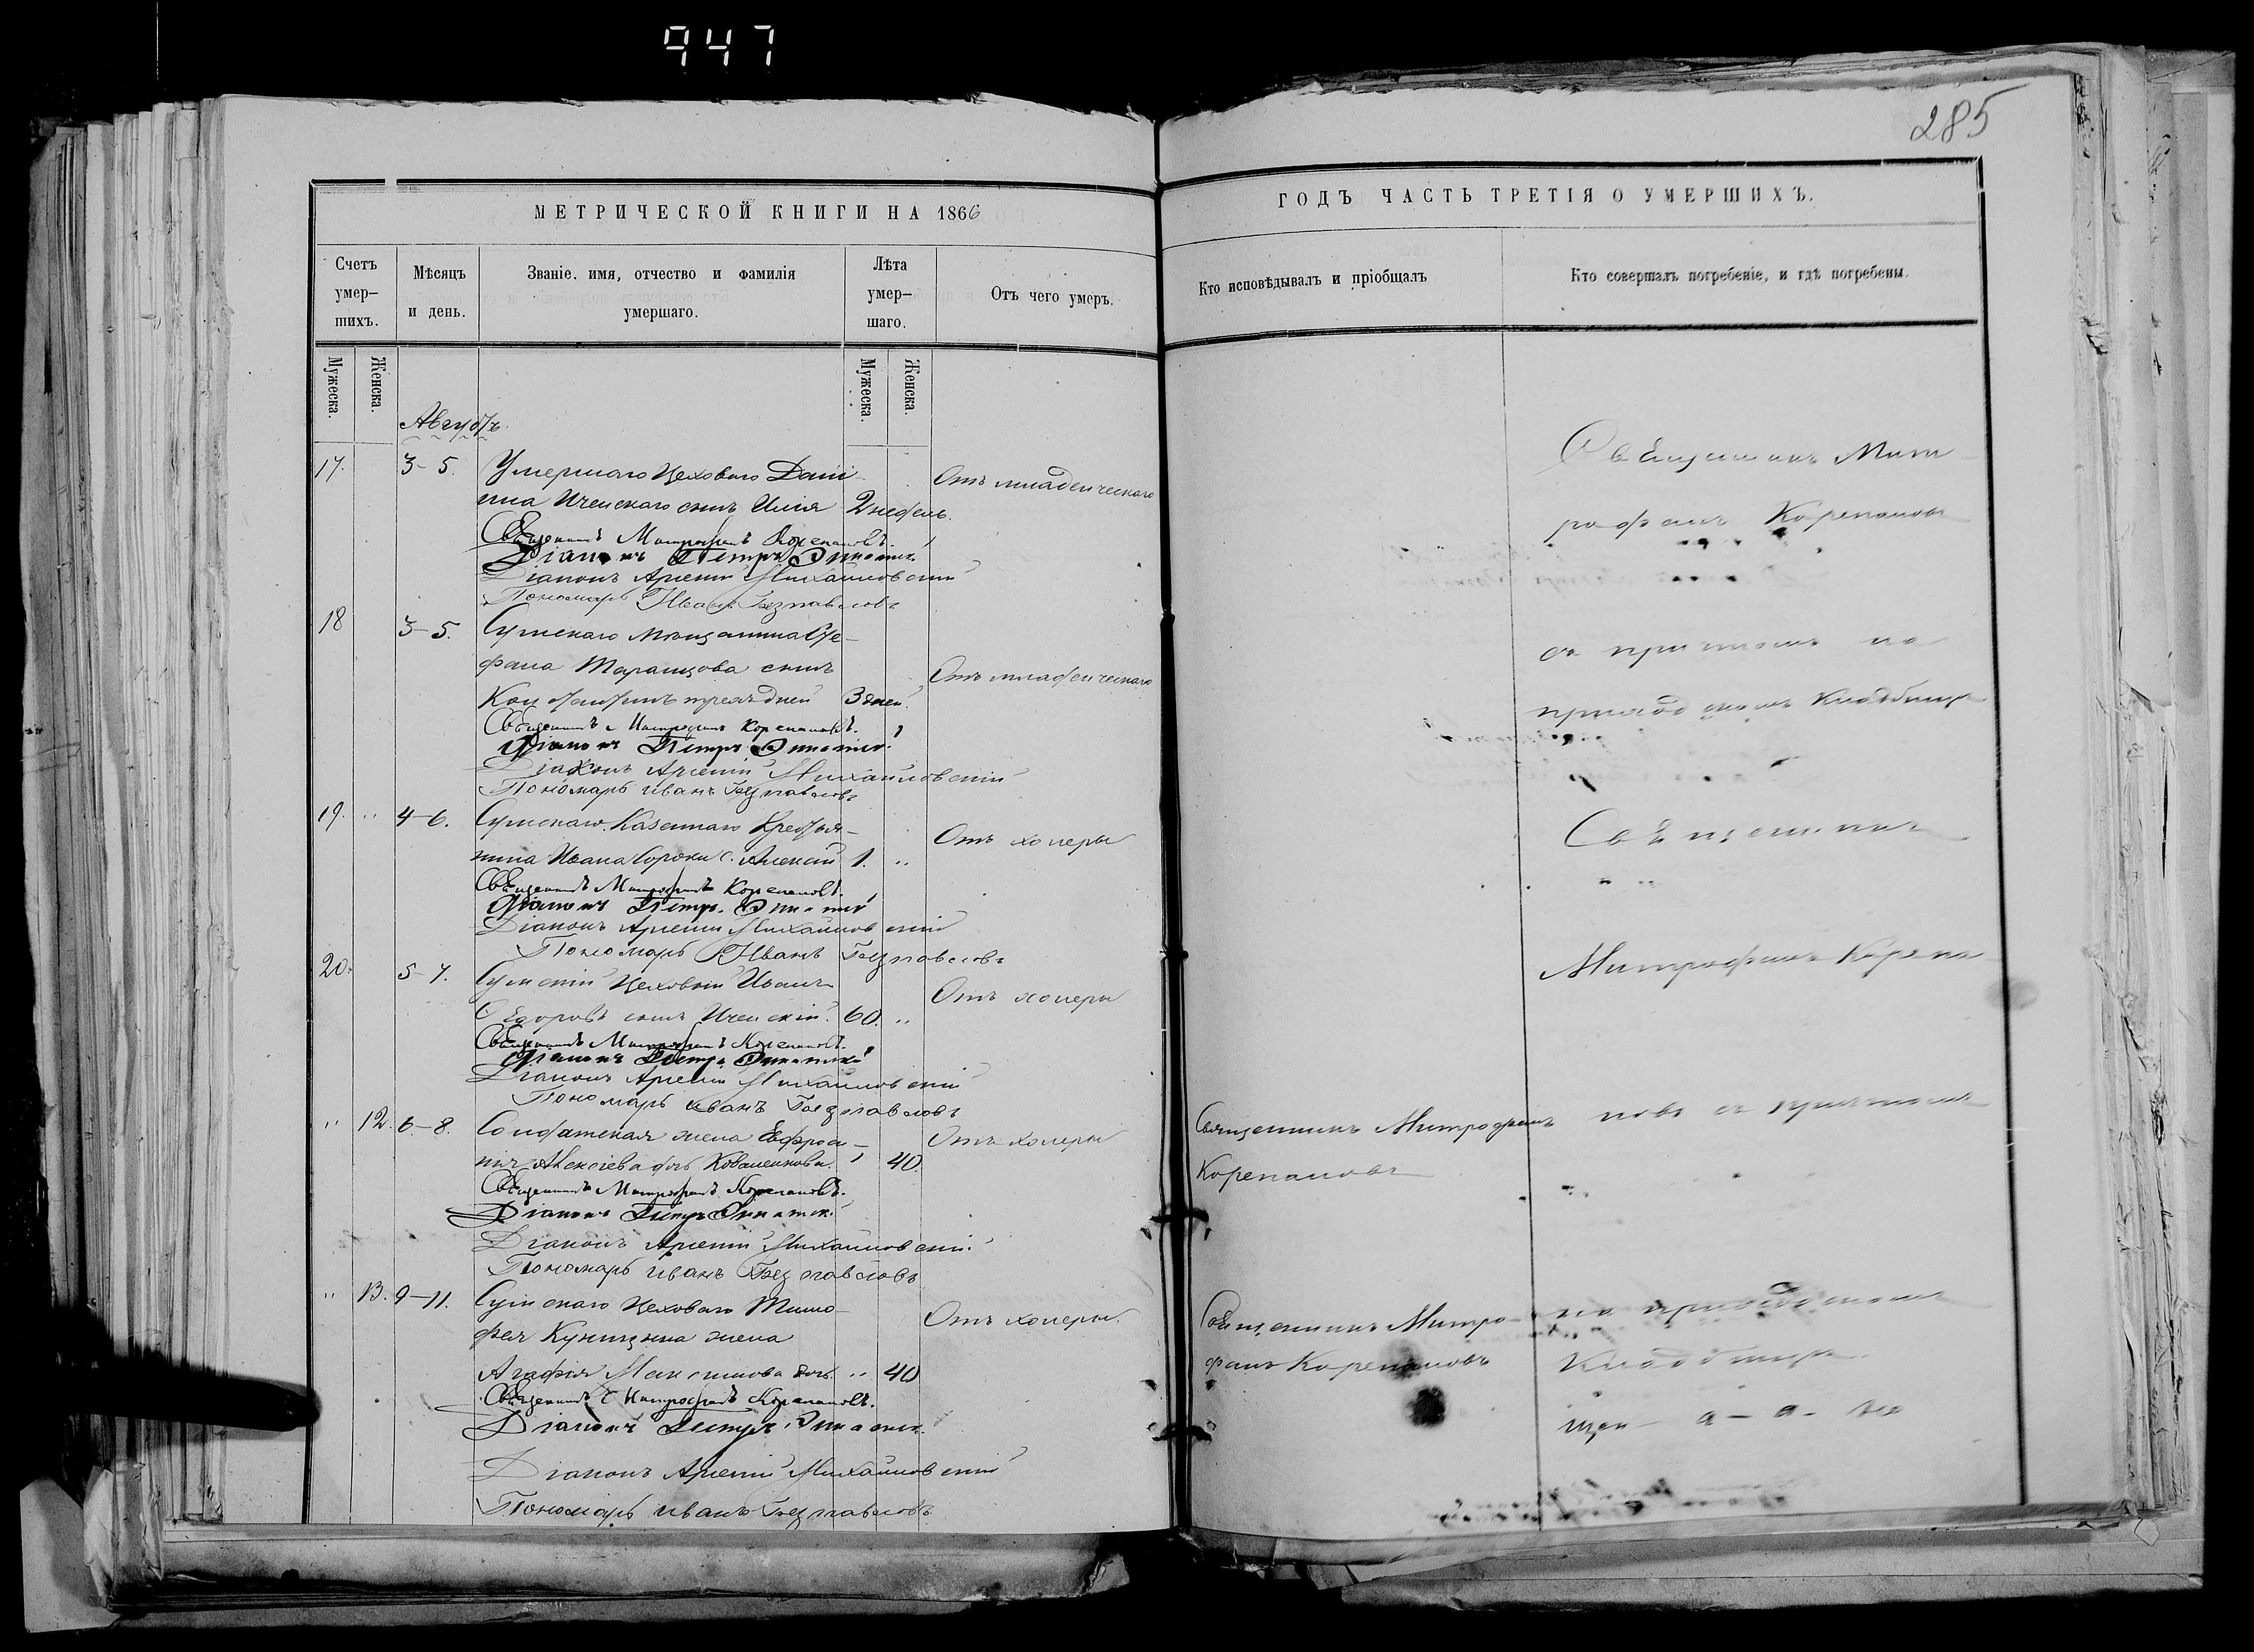 947
285
МЕТРИЧЕСКОЙ КНИГИ НА 1866
ГОДЪ ЧАСТЬ ТРЕТІЯ О УМЕРШИХЪ.
Счетъ умер-шихъ.
Мѣсяцъ и день.
Званіе. имя, отчество и фамилія умершаго.
Лѣта умер-шаго.
Отъ чего умеръ.
Кто исповѣдывалъ и пріобщалъ
Кто совершалъ погребеніе, и гдѣ погребены.
Мужеска.
Женска.
Мужеска.
Женска.
Августъ.
17. 3-5. Умершаго Цеховаго Дані-
ила Ичен­скаго сынъ Илія 2 недѣль. Отъ младенческаго
Священникъ Митрофанъ Корепановъ.
Діаконъ Петръ
Діаконъ Арсеній Михайловскій
Пономарь Иванъ Безпавловъ
18 3-5. Сумскаго мѣщанина Сте-
фана Таранцова сынъ
Константинъ трехъ дней 3 дней. Отъ младенческаго
Священникъ Митрофанъ Корепановъ.
Діаконъ Петръ
Діаконъ Арсеній Михайловскій
Пономарь Иванъ Безпавловъ
19. " 4-6. Сумскаго Казеннаго Крестья-
нина Ивана Сороки с. Алексій 1. " Отъ холеры
Священникъ Митрофанъ Корепановъ.
Діаконъ Петръ
Діаконъ Арсеній Михайловскій
Пономарь Иванъ Безпавловъ
20. 5-7. Сумскій Цеховый Иванъ
Ѳедоровъ сынъ Иченскій. 60. " Отъ холеры
Священникъ Митрофанъ Корепановъ.
Діаконъ Петръ
Діаконъ Арсеній Михайловскій
Пономарь Иванъ Безпавловъ
" 12. 6-8. Солдатская жена Евфроси-
нія Алексіева дочь Коваленкова. 40. Отъ холеры
Священникъ Митрофанъ Корепановъ.
Діаконъ Петръ
Діаконъ Арсеній Михайловскій.
Пономарь Иванъ Безпавловъ
" 13. 9-11. Сумскаго Цеховаго Тимо-
фея Куницына жена
Агафія Максимова дочь. " 40 Отъ холеры.
Священникъ Митрофанъ Корепановъ.
Діаконъ Петръ
Діаконъ Арсеній Михайловскій
Пономарь Иванъ Безпавловъ
Священникъ Митрофанъ
Корепановъ
Священникъ Митро-
фанъ Корепановъ
Священникъ Мит
рофанъ Корепановъ
съ причтомъ на
приходскомъ Кладбищѣ
Священникъ
Митрофанъ Корепа
новъ съ причтомъ
на приходскомъ
Кладбищѣ